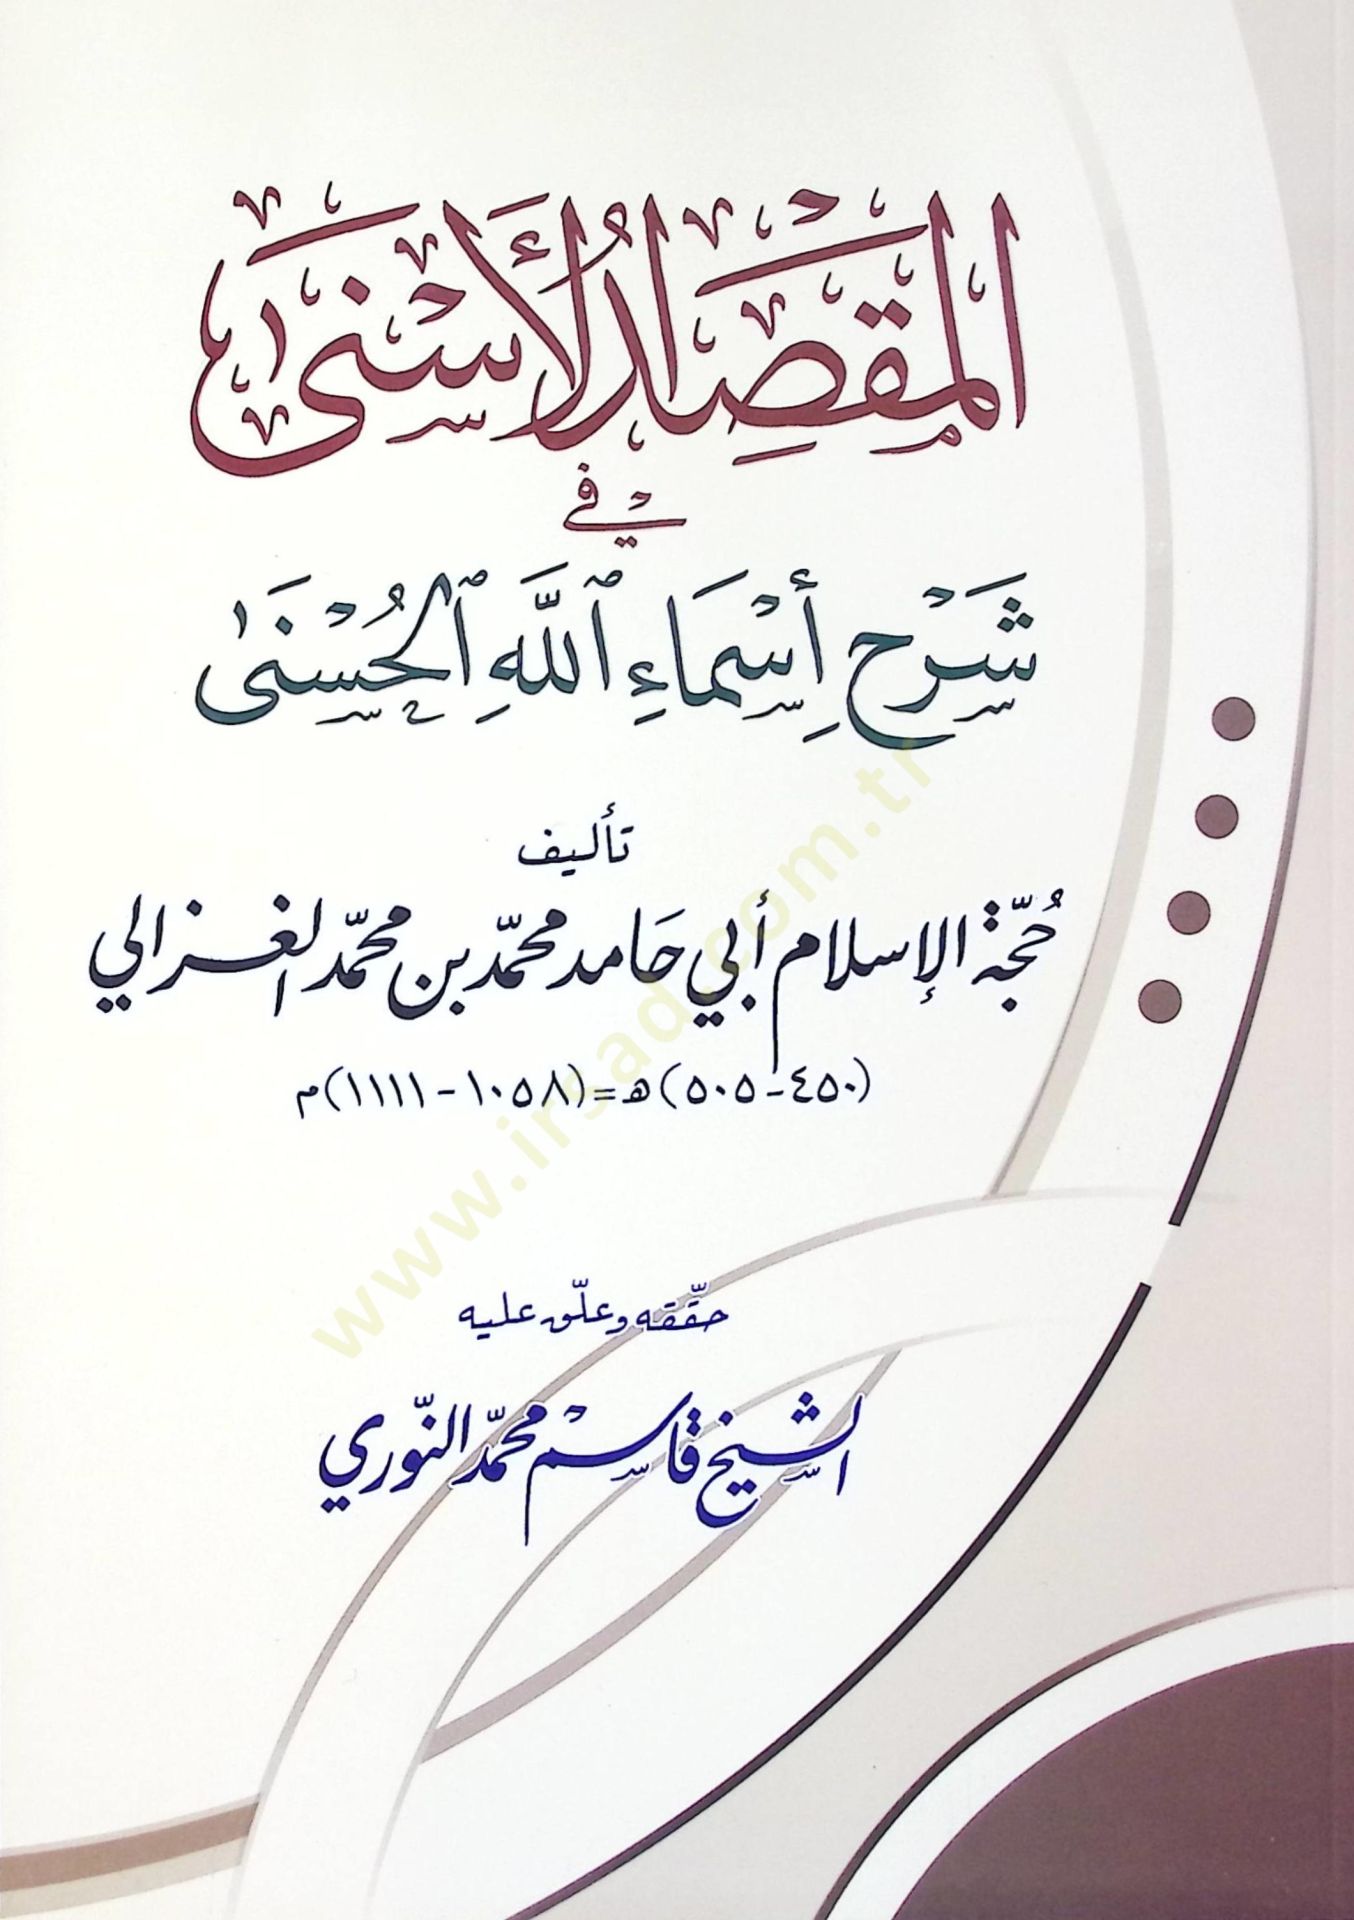 المَقْصَدُ الأَسْنَىٰ
في
شَرْحِ أَسْمَاءِ ٱللَّهِ ٱلْحُسْنَىٰ
تأليف
حُجّة الإسلام أبي حَامد محمّد بن محمّد الغزالي
(٤٥٠-٥٠٥) ه‍ = (١٠٥٨-١١١١) م
حقّقه وعلّق عليه
الشيخ قاسم محمّد النّوري
www.irsad.com.tr